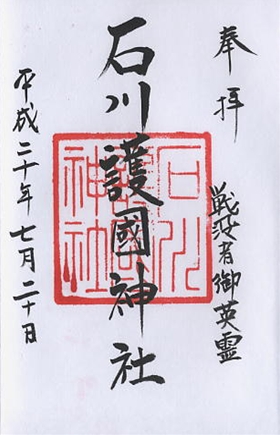 奉拝
戦歿者御英霊
石川護國神社
石川
護國
神社
平成二十年七月二十日